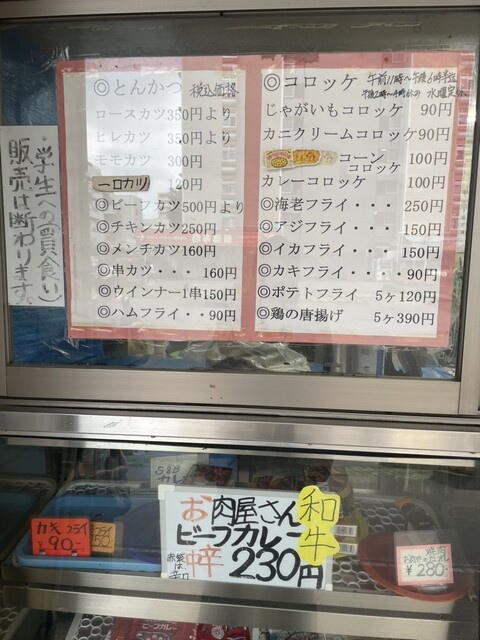 ・学生への(買食い)
販売は断わります。
◎とんかつ 税込価格
ロースカツ350円より
ヒレカツ 350円より
モモカツ 300円
一口カツ 120円
◎ビーフカツ500円より
◎チキンカツ250円
◎メンチカツ160円
◎串カツ・・・160円
◎ウインナー1串150円
◎ハムフライ・・90円
◎コロッケ 午前11時〜午後6時半迄
水曜定休
じゃがいもコロッケ 90円
カニクリームコロッケ90円
コーンコロッケ 100円
カレーコロッケ 100円
◎海老フライ・・・250円
◎アジフライ・・・150円
◎イカフライ・・・150円
◎カキフライ・・・・90円
◎ポテトフライ 5ヶ120円
◎鶏の唐揚げ 5ヶ390円
カキフライ
¥90
お肉屋さん
ビーフカレー
中辛 230円
和牛
¥280